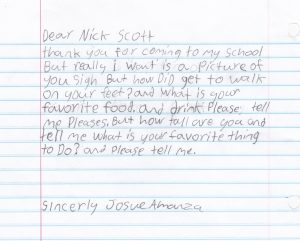 Dear Nick Scott
thank you for coming to my School
But really i want is a Picture of
you sigh But how DiD get to walk
on your feet? and what is your
favorite food. and drink Please; tell
me Pleases. But how tall are you and
tell me what is your favorite thing
to Do? and Please tell me.
Sincerly Josue Amanza